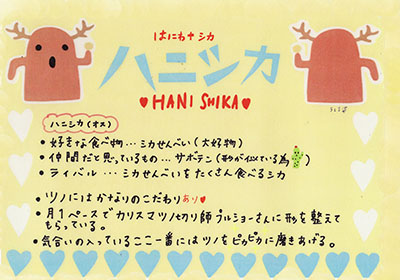 はにわ+シカ
ハニシカ
♥HANI SHIKA♥
うしろは
ハニシカ(オス)
• 好きな食べ物…シカせんべい(大好物)
• 仲間だと思っているもの…サボテン(形が似ている為)
• ライバル…シカせんべいをたくさん食べるシカ
• ツノにはかなりのこだわりあり♥
• 月1ペースでカリスマツノセカリ師プルショーさんに形を整えて
もらっている。
• 気合いの入っているここ一番にはツノをピカピカに磨きあげる。